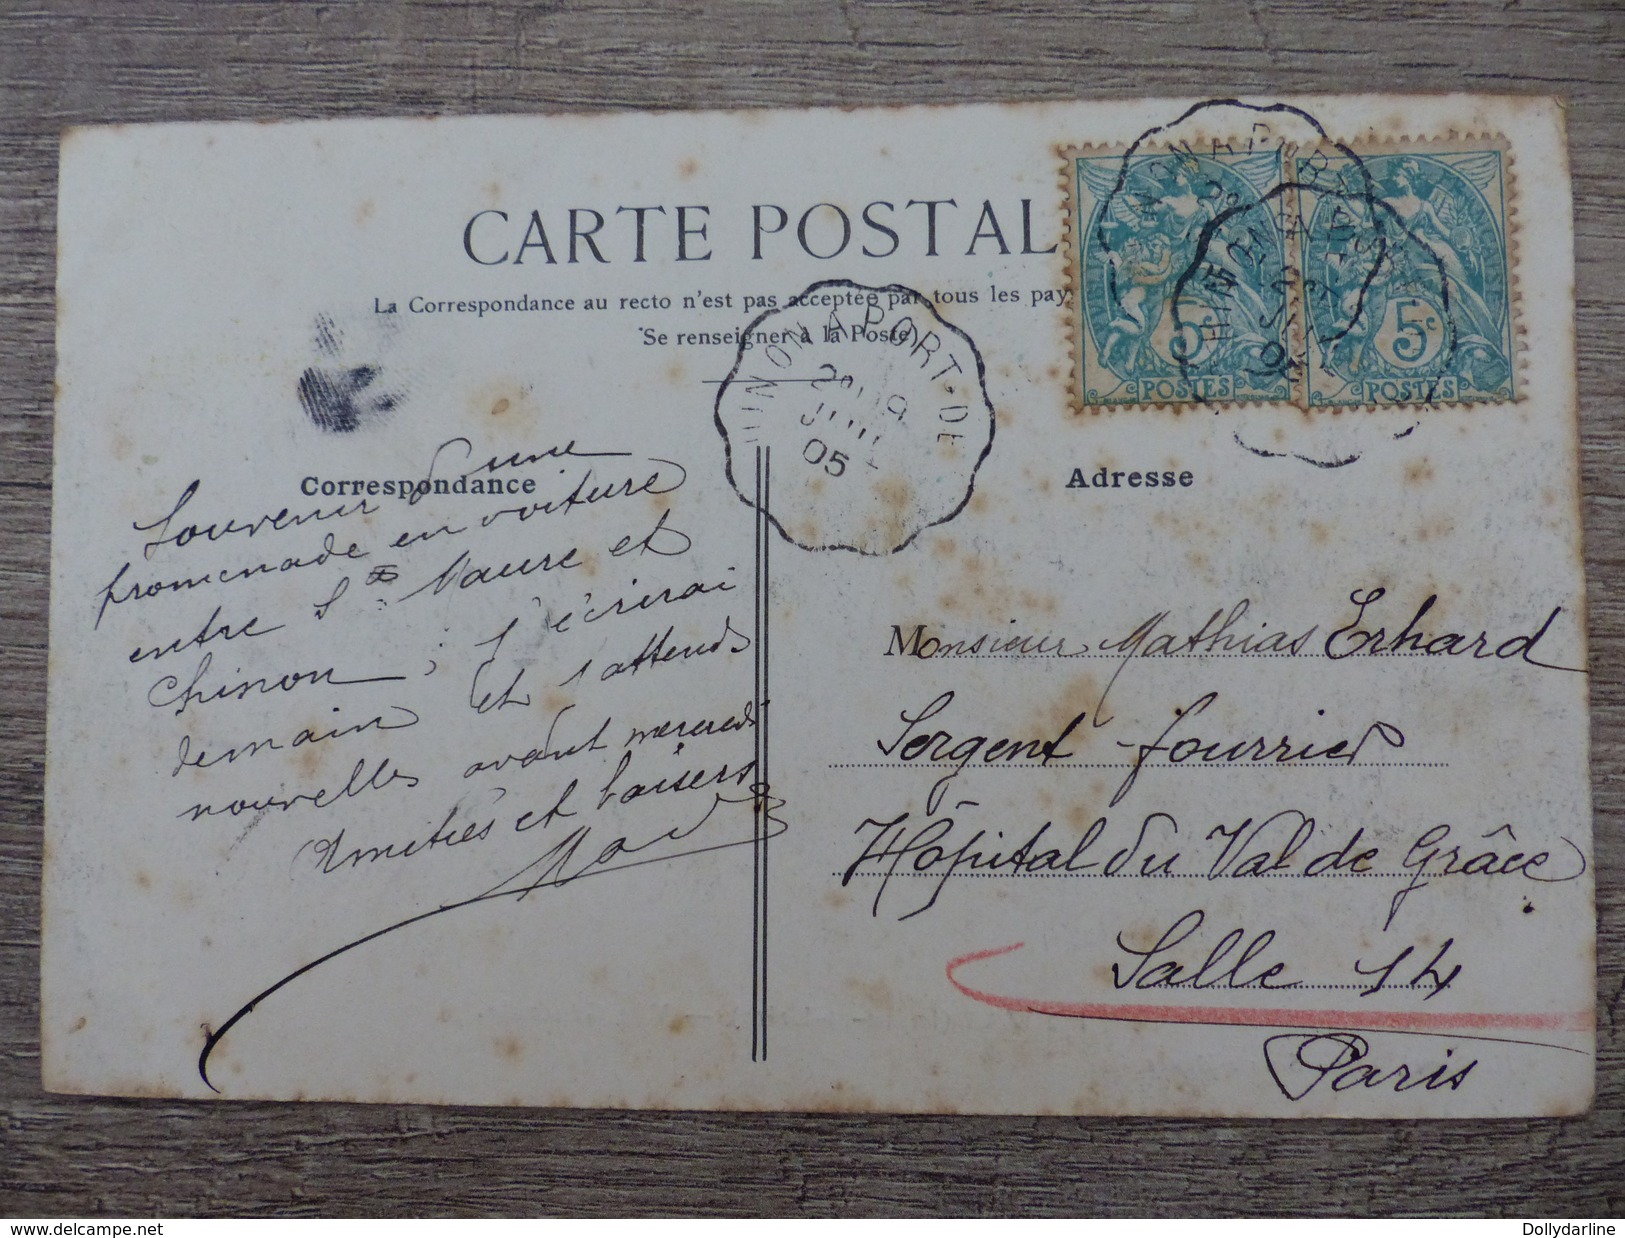 CARTE POSTAL
La Correspondance au recto n'est pas acceptée par tous les pay
Se renseigner à la Poste
CHINON A PORT-DE
JUIL
05
5c
POSTES
5c
POSTES
Correspondance
Souvenir d'une
promenade en voiture
entre Ste Maure et
Chinon ; j'écrirai
demain et j'attends
nouvelles avant mercredi
Amitiés et baisers
Adresse
Monsieur Mathias Erhard
Sergent fourrier
Hôpital du Val de Grâce
Salle 14
Paris
delcampe.net
Dollydarline